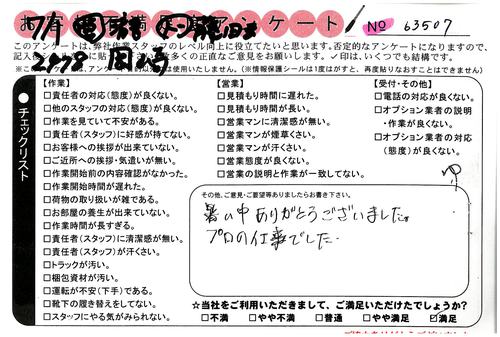 アンケート
No 63507
このアンケートは、弊社作業スタッフのレベル向上に役立てたいと思います。否定的なアンケートになりますので、
多くの正直なご意見をお願いします。✓印は、いくつでも結構です。
使用いたしません。(※情報保護シールは1度はがすと、再度貼りなおすことはできません)
●チェックリスト
【作業】
□責任者の対応(態度)が良くない。
□他のスタッフの対応(態度)が良くない。
□作業を見ていて不安がある。
□責任者(スタッフ)に好感が持てない。
□お客様への挨拶が出来ていない。
□ご近所への挨拶・気遣いが無い。
□作業開始前の内容確認がなかった。
□作業開始時間が遅れた。
□荷物の取り扱いが雑である。
□お部屋の養生が出来ていない。
□作業時間が長すぎる。
□責任者(スタッフ)に清潔感が無い。
□責任者(スタッフ)が汗くさい。
□トラックが汚い。
□梱包資材が汚い。
□運転が不安(下手)である。
□靴下の履き替えをしてない。
□スタッフにやる気がみられない。
【営業】
□見積もり時間に遅れた。
□見積もり時間が長い。
□営業マンに清潔感が無い。
□営業マンが煙草くさい。
□営業マンが汗くさい。
□営業態度が良くない。
□営業の説明と作業が一致してない。
【受付・その他】
□電話の対応が良くない。
□オプション業者の説明
・作業が良くない。
□オプション業者の対応
(態度)が良くない。
その他、ご意見・ご要望等ありましたらお書き下さい。
暑い中ありがとうございました。
プロの仕事でした。
☆当社をご利用いただきまして、ご満足いただけたでしょうか?
□不満 □やや不満 □普通 □やや満足 ☑満足